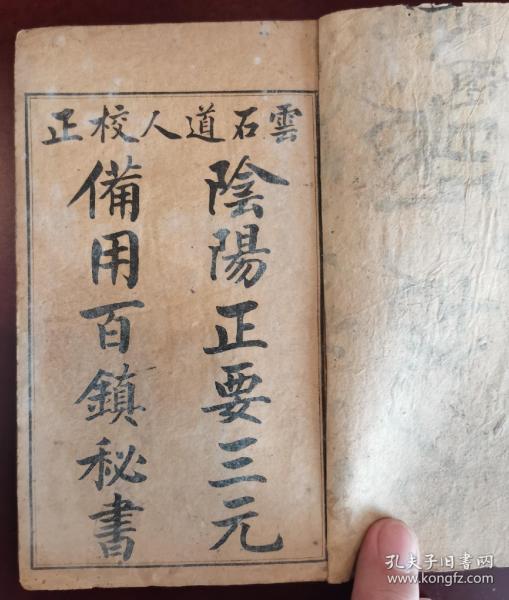 雲石道人校正
陰陽正要三元
備用百鎮秘書
孔夫子旧书网
www.kongfz.com